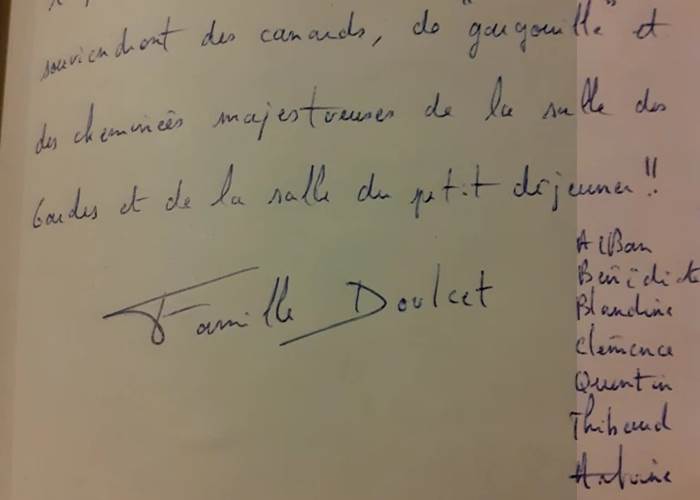 souviendront des canards, de "gargouille" et
des cheminées majestueuses de la salle des
Gardes et de la salle du petit déjeuner !!
Famille Doulcet
Alban
Bénédicte
Blandine
Clémence
Quentin
Thibaud
Antoine